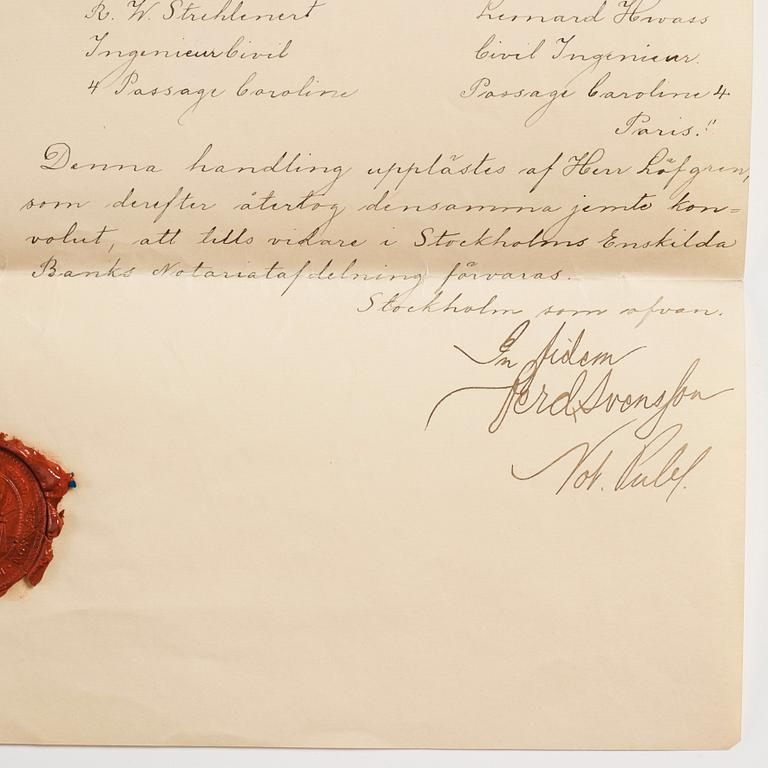 R. W. Strehlenert Leonard Hwass
Ingenieur Civil Civil Ingenieur.
4 Passage Caroline Passage Caroline 4
Paris."
Denna handling upplästes af Herr Löfgren,
som derefter återtog densamma jemte kon=
volut, att tills vidare i Stockholms Enskilda
Banks Notariatafdelning förvaras.
Stockholm som ofvan.
In fidem
Ferd Svensson
Not. Publ.